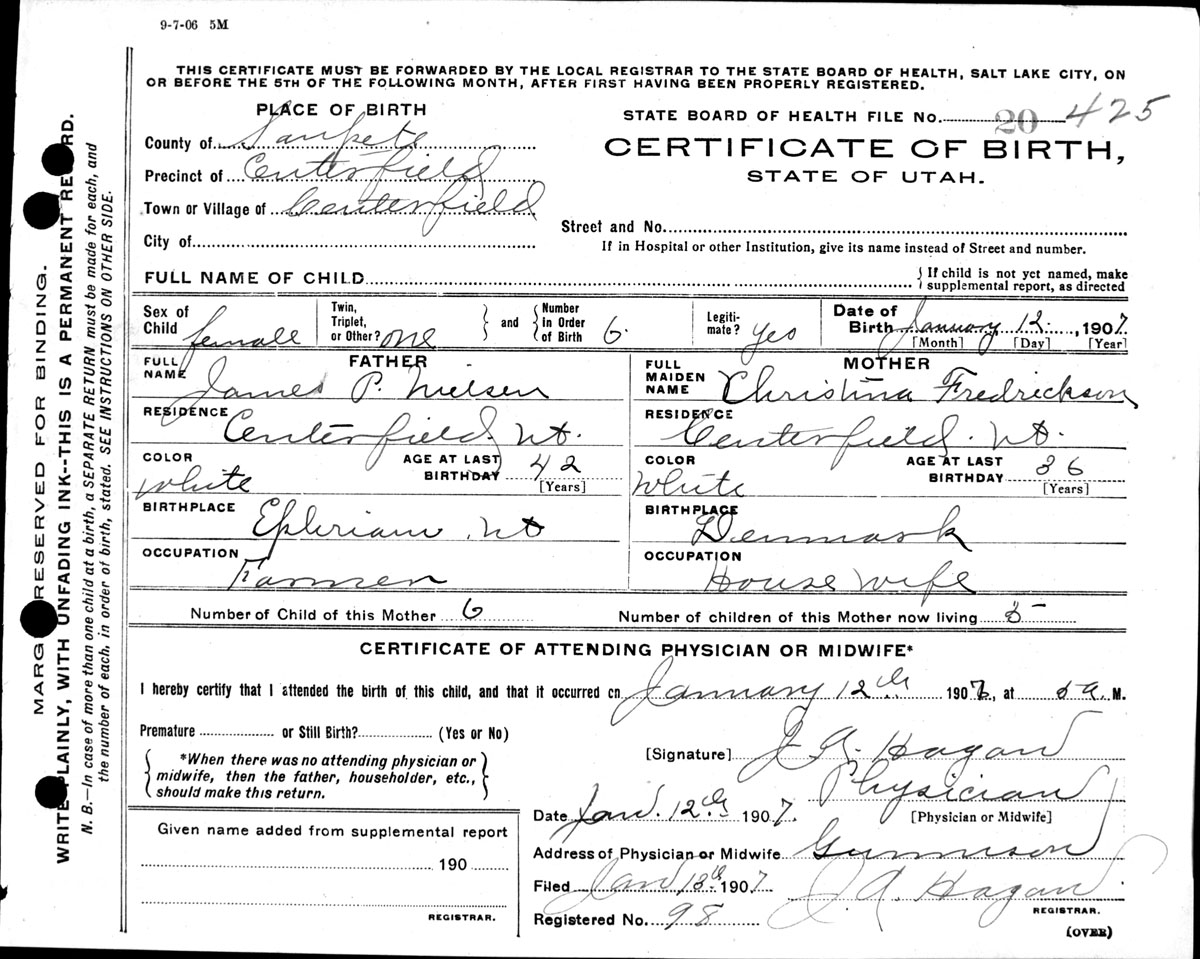 9-7-06 5M
THIS CERTIFICATE MUST BE FORWARDED BY THE LOCAL REGISTRAR TO THE STATE BOARD OF HEALTH, SALT LAKE CITY, ON
OR BEFORE THE 5TH OF THE FOLLOWING MONTH, AFTER FIRST HAVING BEEN PROPERLY REGISTERED.
PLACE OF BIRTH
County of Sanpete
Precinct of Centerfield
Town or Village of Centerfield
City of
STATE BOARD OF HEALTH FILE No. 20 425
CERTIFICATE OF BIRTH,
STATE OF UTAH.
Street and No.
If in Hospital or other Institution, give its name instead of Street and number.
FULL NAME OF CHILD
If child is not yet named, make
supplemental report, as directed
Sex of Child female
Twin, Triplet, or Other? one
and
Number in Order of Birth 6
Legitimate? yes
Date of Birth January 12, 1907
[Month] [Day] [Year]
FATHER
FULL NAME James P. Nielsen
RESIDENCE Centerfield, Ut.
COLOR White
AGE AT LAST BIRTHDAY 42
[Years]
BIRTHPLACE Ephriam, Ut
OCCUPATION Farmer
MOTHER
FULL MAIDEN NAME Christina Fredrickson
RESIDENCE Centerfield. Ut.
COLOR White
AGE AT LAST BIRTHDAY 36
[Years]
BIRTHPLACE Denmark
OCCUPATION House wife
Number of Child of this Mother 6
Number of children of this Mother now living 5
CERTIFICATE OF ATTENDING PHYSICIAN OR MIDWIFE*
I hereby certify that I attended the birth of this child, and that it occurred on January 12th 1907, at 5 a. M.
Premature or Still Birth? (Yes or No)
*When there was no attending physician or
midwife, then the father, householder, etc.,
should make this return.
[Signature] J. A. Hagan
Physician
[Physician or Midwife]
Date Jan. 12th. 1907
Address of Physician or Midwife Gunnison
Filed Jan 13th 1907 J. A. Hagan
REGISTRAR.
Registered No. 98
(OVER)
Given name added from supplemental report
190
REGISTRAR.
MARG RESERVED FOR BINDING.
WRITE PLAINLY, WITH UNFADING INK--THIS IS A PERMANENT RE RD.
N. B.—In case of more than one child at a birth, a SEPARATE RETURN must be made for each, and
the number of each, in order of birth, stated. SEE INSTRUCTIONS ON OTHER SIDE.